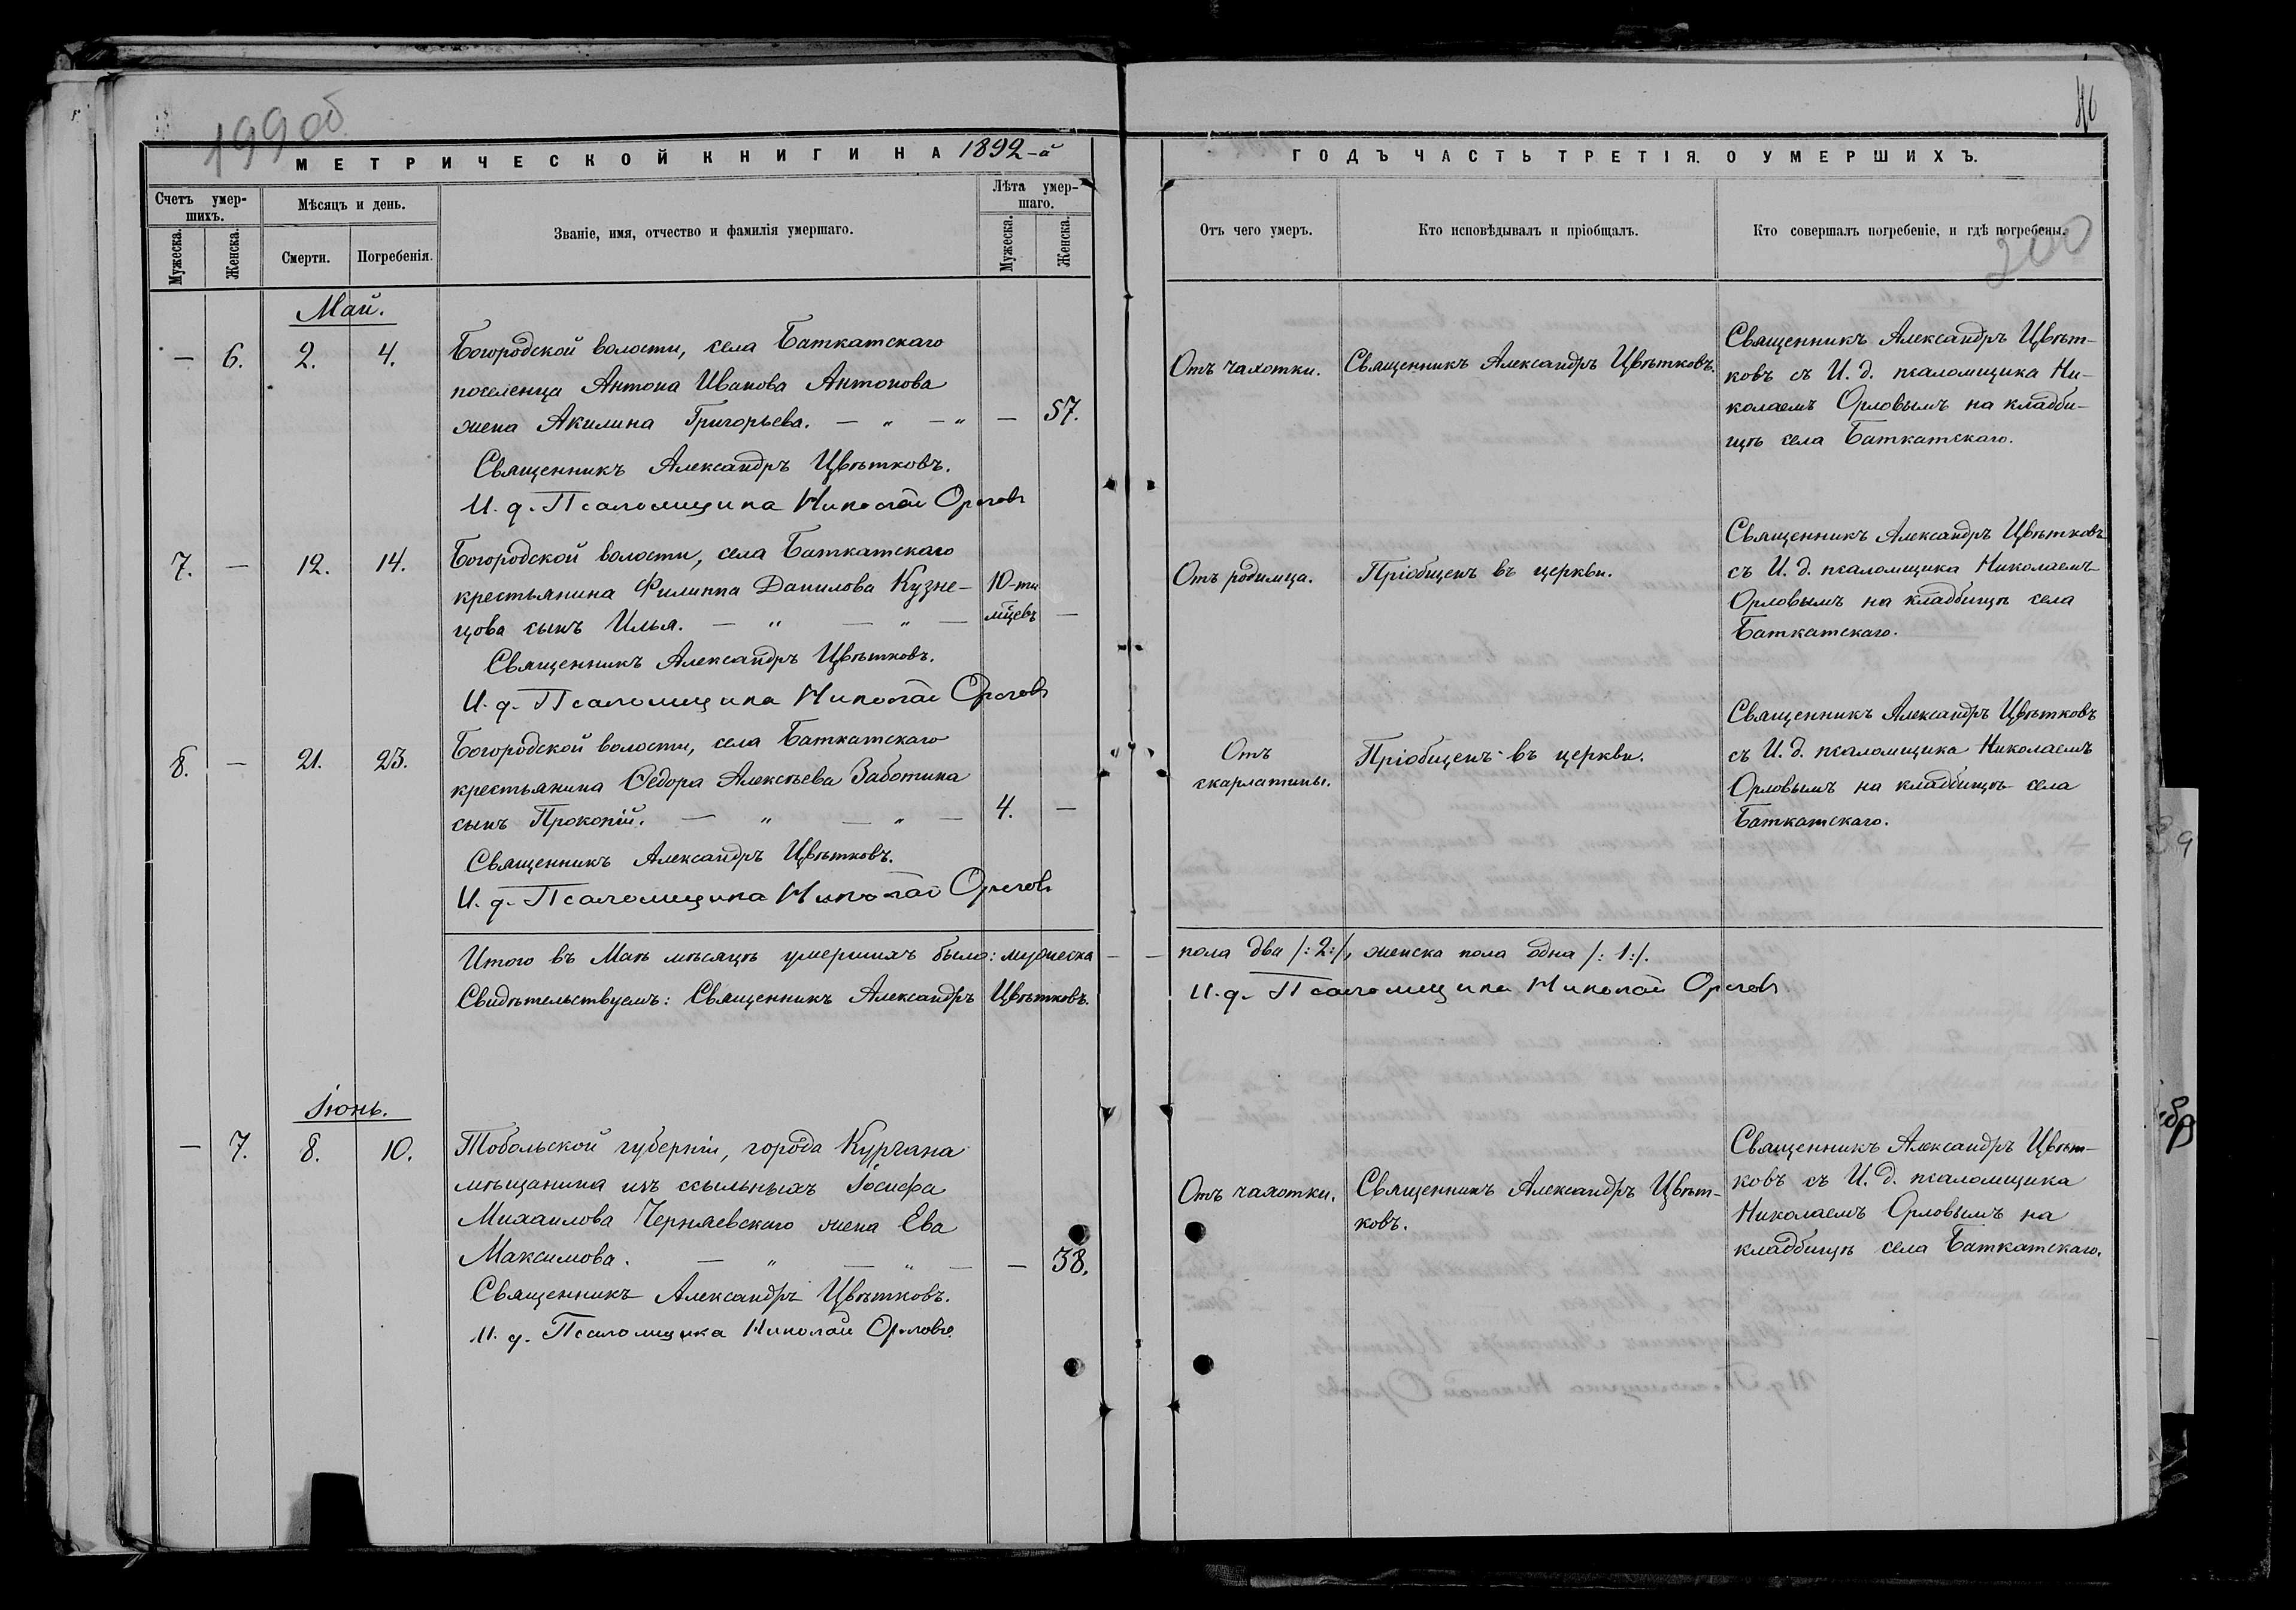 199 об
МЕТРИЧЕСКОЙ КНИГИ НА 1892-й
Счетъ умер-
шихъ.
Мѣсяцъ и день.
Званіе, имя, отчество и фамилія умершаго.
Лѣта умер-
шаго.
Мужеска.
Женска.
Смерти.
Погребенія.
Мужеска.
Женска.
Май.
— 6. 2. 4.
Богородской волости, села Баткатскаго
поселенца Антона Иванова Антонова
жена Акилина Григорьева. — „ — „ — 57.
Священникъ Александръ Цвѣтковъ.
И. д. Псаломщика Николай Орловъ
7. — 12. 14.
Богородской волости, села Баткатскаго
крестьянина Филиппа Данилова Кузне- 10-ти
цова сынъ Илья. — „ — „ — мцевъ —
Священникъ Александръ Цвѣтковъ.
И. д. Псаломщика Николай Орловъ
8. — 21. 23.
Богородской волости, села Баткатскаго
крестьянина Ѳедора Алексѣева Заботина
сынъ Прокопій. — „ — „ — 4. —
Священникъ Александръ Цвѣтковъ.
И. д. Псаломщика Николай Орловъ
Итого въ Маѣ мѣсяцѣ умершихъ было: мужеска —
Свидѣтельствуемъ: Священникъ Александръ Цвѣтковъ.
Іюнь.
— 7. 8. 10.
Тобольской губерніи, города Кургана
мѣщанина изъ ссыльныхъ Іосифа
Михаилова Черняевскаго жена Ева
Максимова. — „ — „ — — 38.
Священникъ Александръ Цвѣтковъ.
И. д. Псаломщика Николай Орловъ
ГОДЪ ЧАСТЬ ТРЕТІЯ. О УМЕРШИХЪ.
Отъ чего умеръ.
Кто исповѣдывалъ и пріобщалъ.
Кто совершалъ погребеніе, и гдѣ погребены.
200
Отъ чахотки.
Священникъ Александръ Цвѣтковъ.
Священникъ Александръ Цвѣт-
ковъ съ И. д. псаломщика Ни-
колаемъ Орловымъ на кладби-
щѣ села Баткатскаго.
Отъ родимца.
Пріобщенъ въ церкви.
Священникъ Александръ Цвѣтковъ
съ И. д. псаломщика Николаемъ
Орловымъ на кладбищѣ села
Баткатскаго.
Отъ
скарлатины.
Пріобщенъ въ церкви.
Священникъ Александръ Цвѣтковъ
съ И. д. псаломщика Николаемъ
Орловымъ на кладбищѣ села
Баткатскаго.
— пола два /:2:/, женска пола одна /:1:/.
И. д. Псаломщика Николай Орловъ
Отъ чахотки.
Священникъ Александръ Цвѣт-
ковъ.
Священникъ Александръ Цвѣт-
ковъ съ И. д. псаломщика
Николаемъ Орловымъ на
кладбищѣ села Баткатскаго.